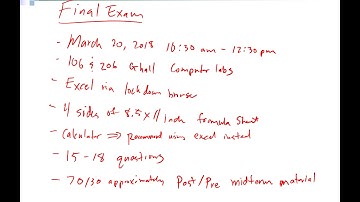 Final Exam
- March 20, 2018 10:30 am - 12:30 pm
- 106 & 206 Ghall Computer labs
- Excel via lockdown browser
- 4 sides of 8.5 x 11 inch formula sheet
- Calculator ⇒ Recommend using excel instead
- 15 - 18 questions
- 70/30 approximately Post/Pre midterm material